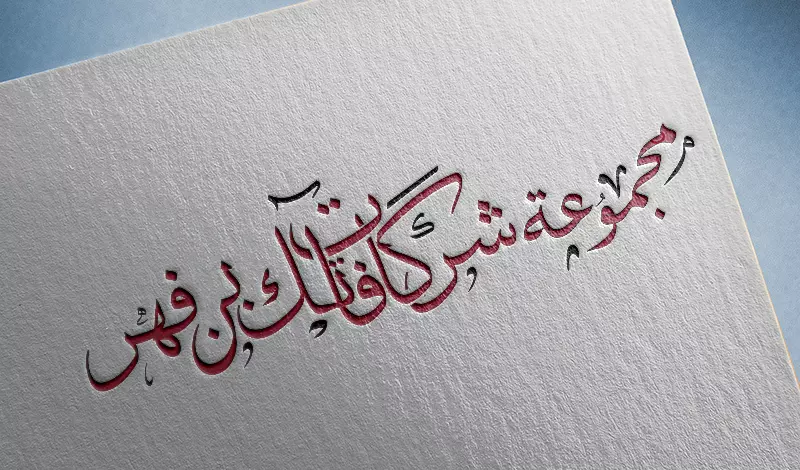 مجموعة شركات فاتك بن فهر